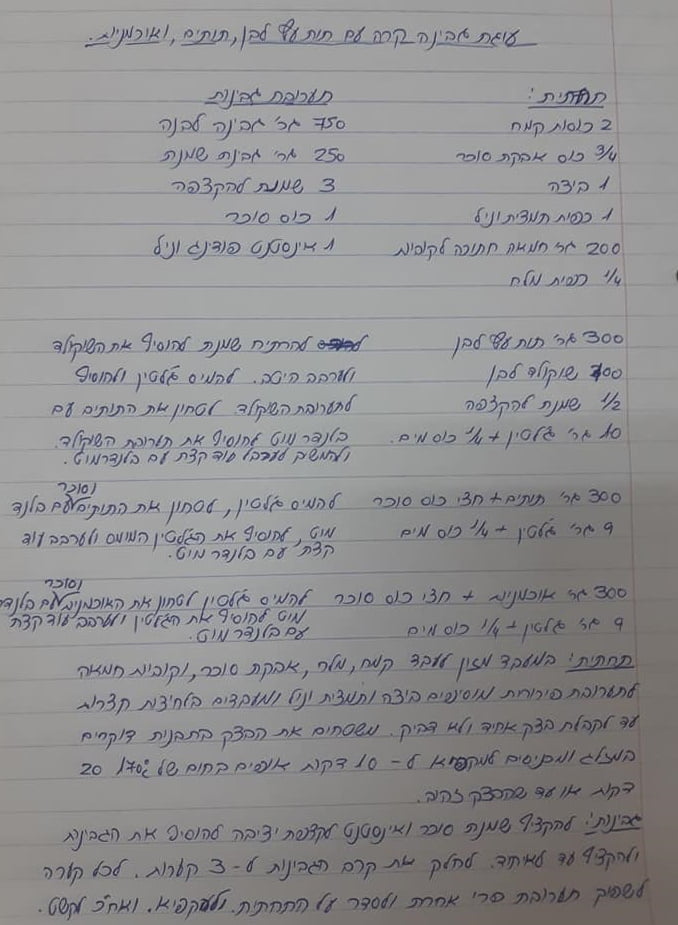 עוגת גבינה קרה עם תות עץ לבן, תותים, ואוכמניות.
תחתית:
2 כוסות קמח
3/4 כוס אבקת סוכר
1 ביצה
1 כפית תמצית וניל
200 גר' חמאה חתוכה לקוביות
1/4 כפית מלח
תערובת גבינות
750 גר' גבינה לבנה
250 גר' גבינת שמנת
3 שמנת להקצפה
1 כוס סוכר
1 אינסטנט פודינג וניל
300 גר' תות עץ לבן
400 שוקולד לבן
1/2 שמנת להקצפה
10 גר' ג'לטין + 1/4 כוס מים.
להרתיח שמנת להוסיף את השוקולד
ולערבב היטב. להמיס ג'לטין ולהוסיף
לתערובת השוקולד. לטחון את התותים עם
בלנדר מוט להוסיף את תערובת השוקולד.
ולהמשיך לערבל עוד קצת עם בלנדר מוט.
300 גר' תותים + חצי כוס סוכר
9 גר' ג'לטין + 1/4 כוס מים
להמיס ג'לטין, לטחון את התותים וסוכר עם בלנד
מוט, להוסיף את הג'לטין המומס ולערבב עוד
קצת עם בלנדר מוט.
300 גר' אוכמניות + חצי כוס סוכר
9 גר' ג'לטין + 1/4 כוס מים
להמיס ג'לטין לטחון את האוכמניות וסוכר עם בלנדר
מוט להוסיף את הג'לטין ולערבב עוד קצת
עם בלנדר מוט.
תחתית: במעבד מזון לעבד קמח, מלח, אבקת סוכר, וקוביות חמאה
לתערובת פירורית מוסיפים ביצה ותמצית וניל ומעבדים בלחיצות קצרות
עד לקבלת בצק אחיד ולא דביק. משטחים את הבצק בתבנית דוקרים
במזלג ומכניסים למקפיא ל- 10 דקות אופים בחום של 170° 20
דקות או עד שהבצק זהוב.
גבינות: להקציף שמנת סוכר ואינסטנט לקצפת יציבה להוסיף את הגבינות
ולהקציף עד לאיחוד. לחלק את קרם הגבינות ל- 3 קערות. לכל קערה
לשפוך תערובת פרי אחרת ולסדר על התחתית. ולהקפיא. ואח"כ לקשט.